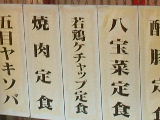 酢豚定食
八宝菜定食
若鶏ケチャップ定食
焼肉定食
五目ヤキソバ